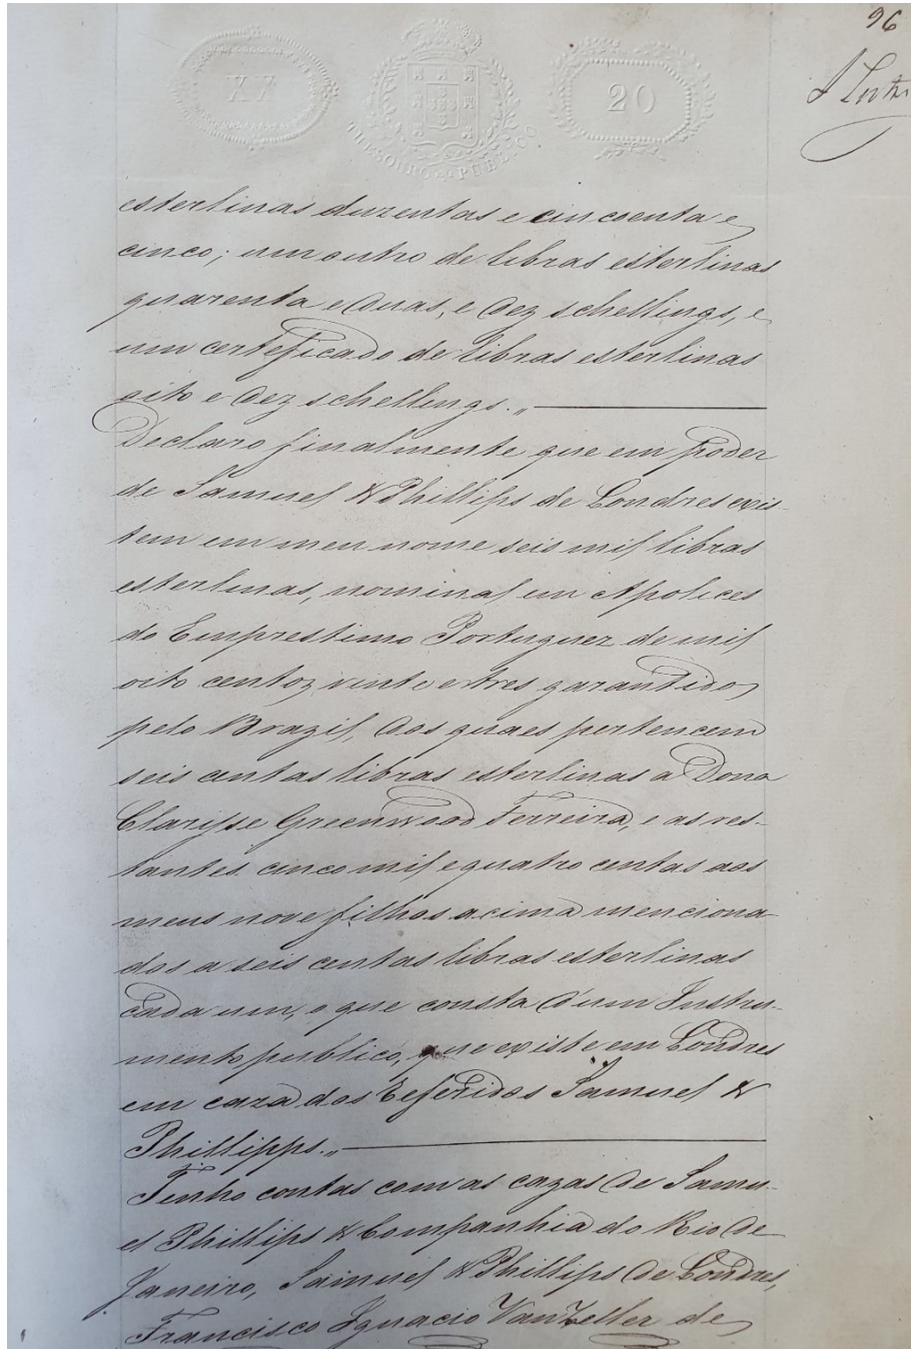 96
XX
THESOURO PUBLICO
20
esterlinas duzentas e cincoenta e
cinco; um outro de libras esterlinas
quarenta e duas, e dez schellings, e
um certeficado de libras esterlinas
oito e dez schellings.,,
Declaro finalmente que em poder
de Samuel & Phillips de Londres exis-
tem em meu nome seis mil libras
esterlinas, nominal em Apolices
do Emprestimo Portuguez de mil
oito centos, vinte e tres garantido
pelo Brazil, dos quaes pertencem
seis centas libras esterlinas a Dona
Clarisse Greenwood Ferreira, e as res-
tantes cinco mil e quatro centas aos
meus nove filhos acima menciona-
dos a seis centas libras esterlinas
cada um, o que consta d'um Instru-
mento publico, que existe em Londres
em caza dos Referidos Samuel &
Phillipps.,,
Tenho contas com as cazas de Samu-
el Phillips & Companhia do Rio de
Janeiro, Samuel & Phillips de Londres,
Francisco Ignacio VanZeller de